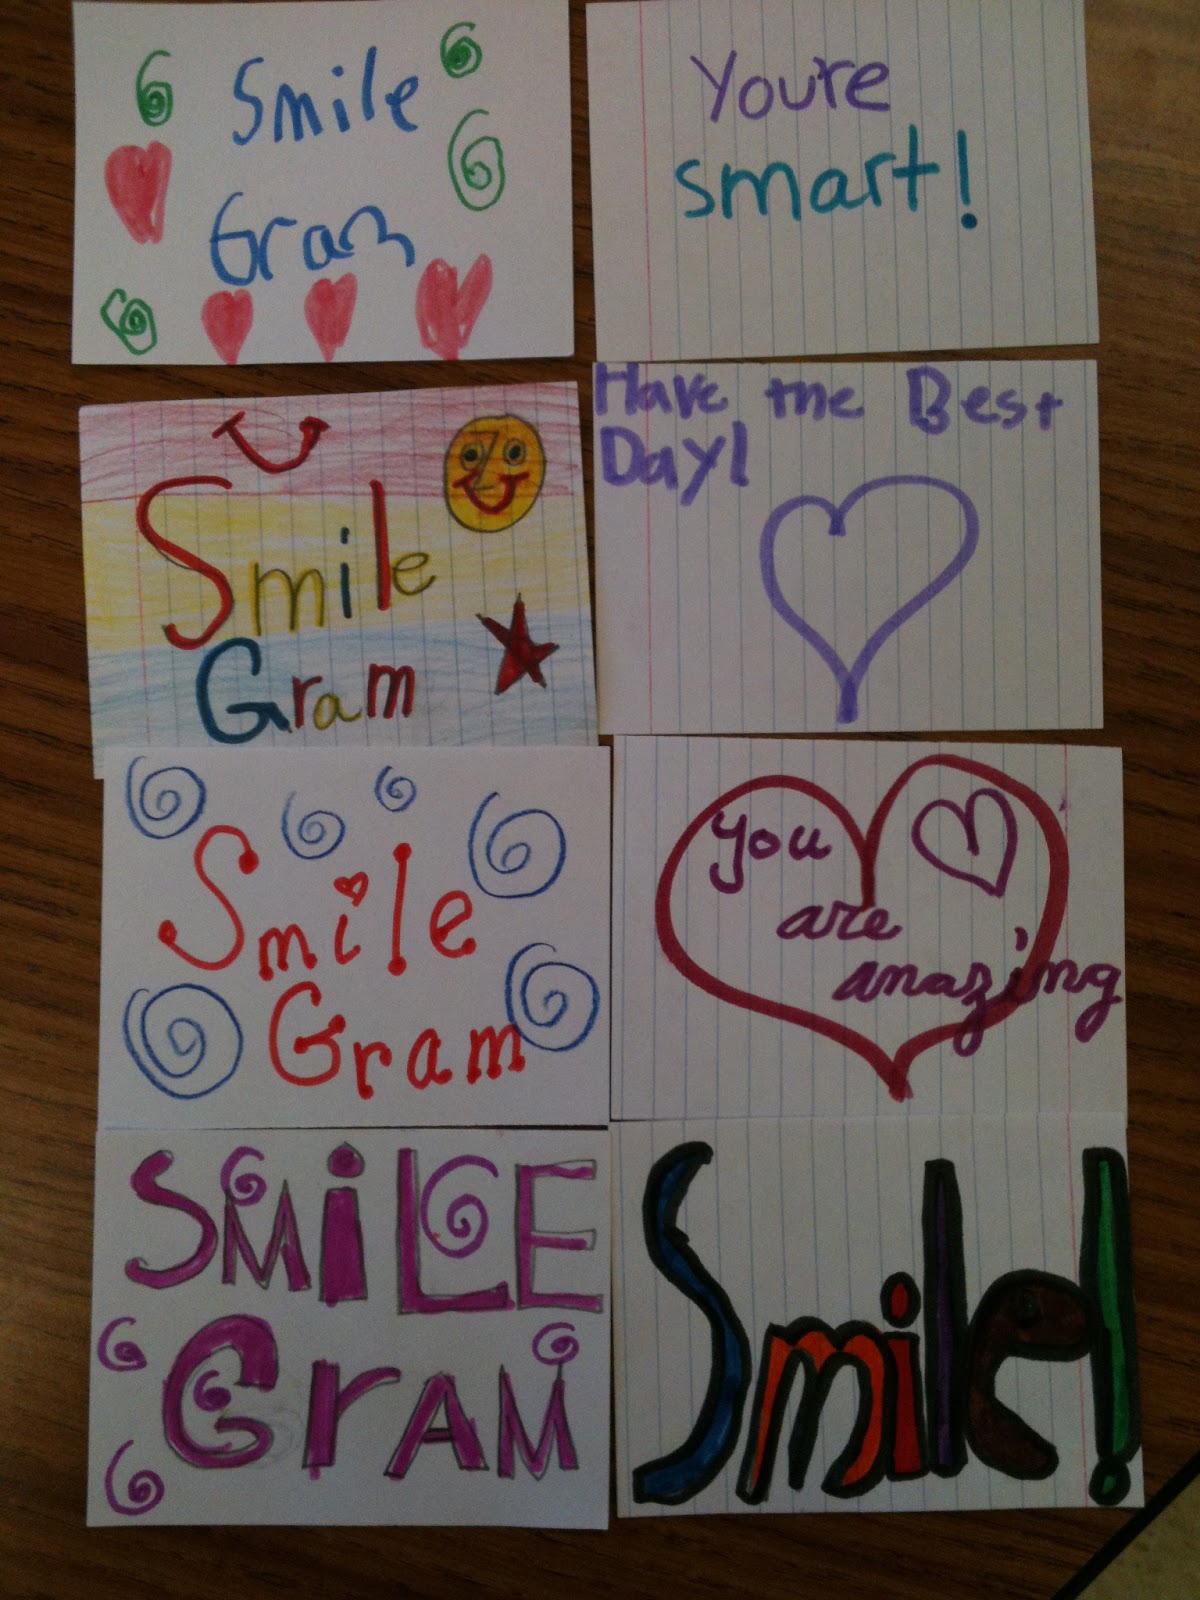 Smile
Gram
You're
smart!
Smile
Gram
Have the Best
Day!
Smile
Gram
you
are
amazing
SMiLE
GrAM
Smile!